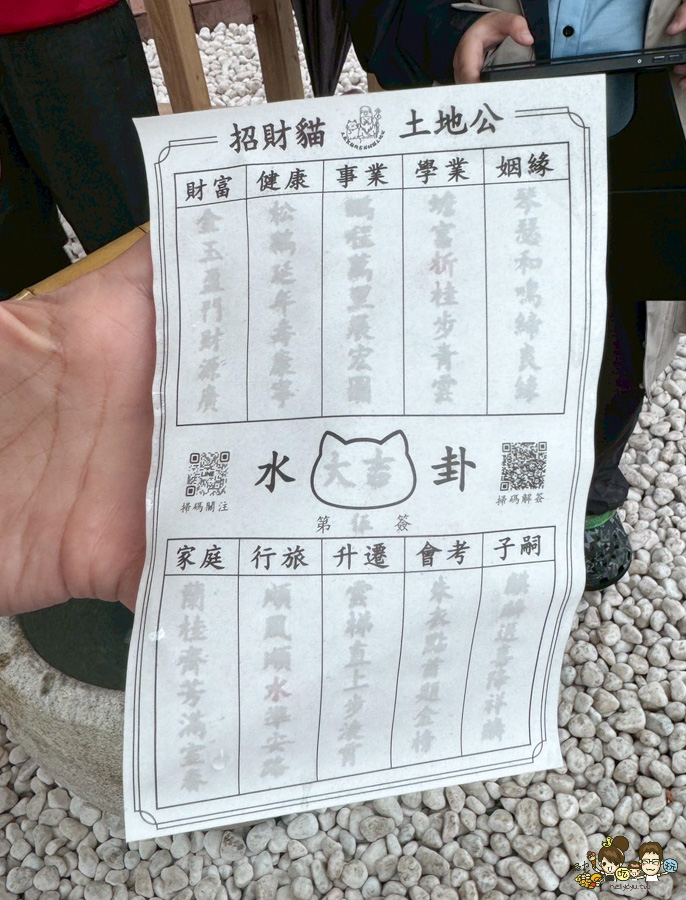 招財貓 土地公
財富 健康 事業 學業 姻緣
金玉盈門財源廣
松鶴延年壽康寧
鵬程萬里展宏圖
蟾宮折桂步青雲
琴瑟和鳴締良緣
水 大吉 卦
LINE
掃碼關注
掃碼解簽
第 簽
家庭 行旅 升遷 會考 子嗣
蘭桂齊芳滿室春
順風順水準安路
雲梯直上步
朱衣點首題金榜
喜降祥麟
neilyoyo.tw